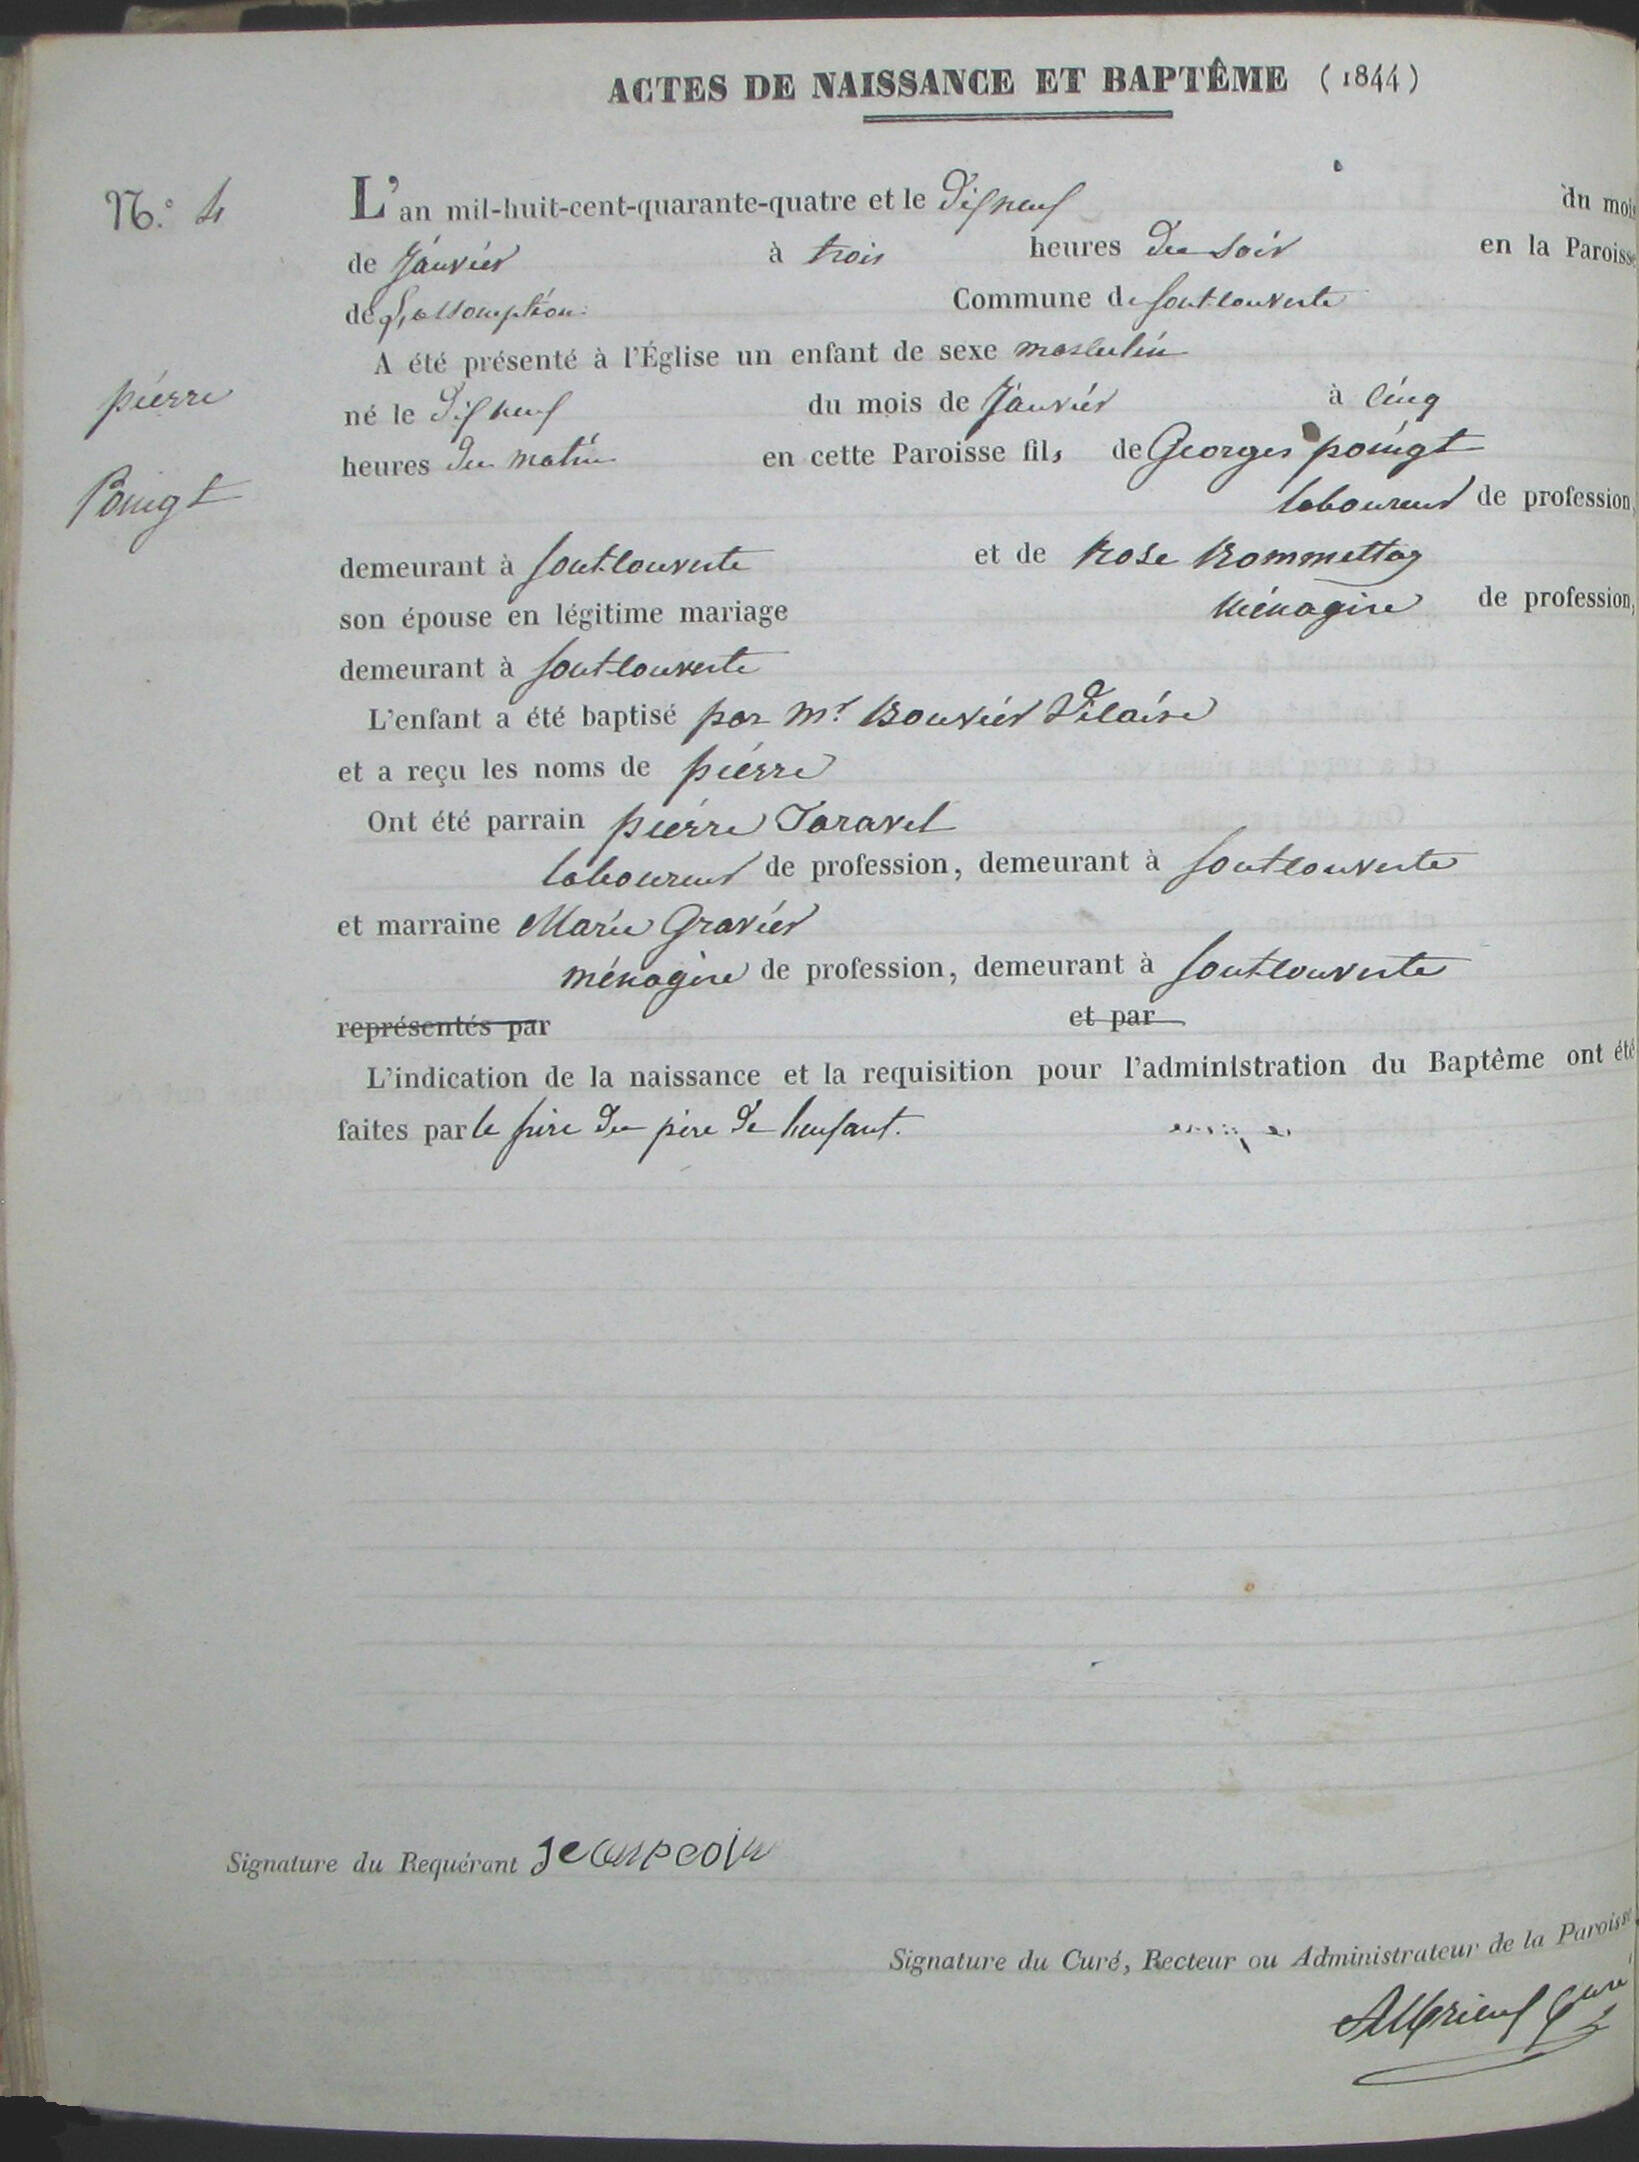 ACTES DE NAISSANCE ET BAPTÊME (1844)
N.º 4
L'an mil-huit-cent-quarante-quatre et le dixneuf du mois
de janvier à trois heures du soir en la Paroisse
de L'assomption Commune de fontcouverte
A été présenté à l'Église un enfant de sexe masculin
pierre
né le dixneuf du mois de janvier à cinq
heures du matin en cette Paroisse fils de Georges poingt
Poingt
laboureur de profession,
demeurant à fontcouverte et de Rose Rommettaz
son épouse en légitime mariage ménagère de profession,
demeurant à fontcouverte
L'enfant a été baptisé par Mr Bouvier hilaire
et a reçu les noms de pierre
Ont été parrain pierre Taravel
laboureur de profession, demeurant à fontcouverte
et marraine Marie Gravier
ménagère de profession, demeurant à fontcouverte
représentés par et par
L'indication de la naissance et la requisition pour l'administration du Baptême ont été
faites par le frère du père de l'enfant.
Signature du Requérant
Signature du Curé, Recteur ou Administrateur de la Paroisse
Curé